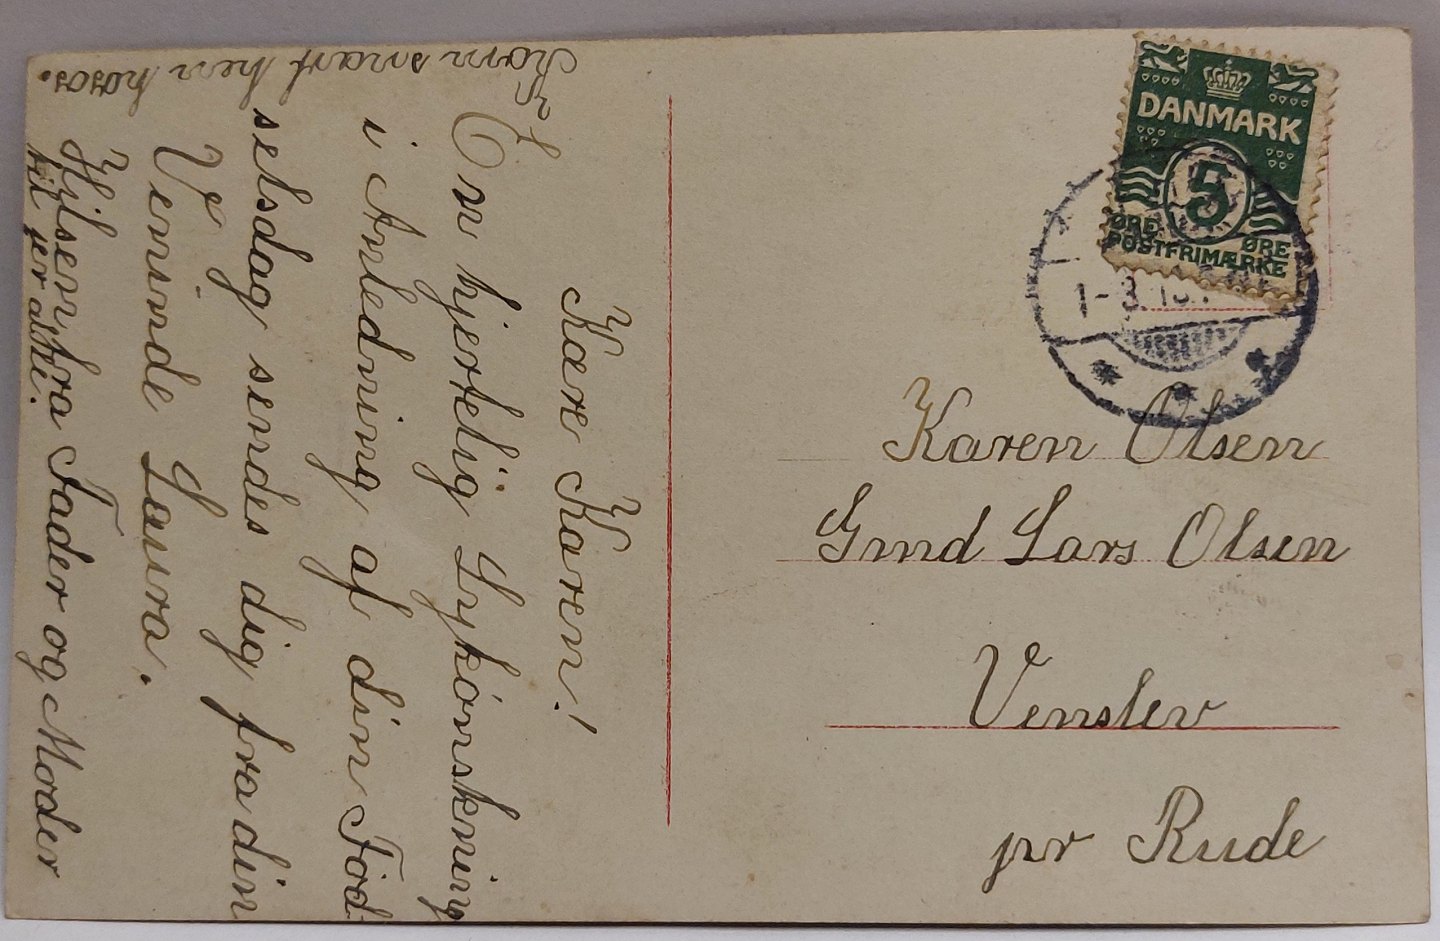 Kære Karen!
En hjertelig Lykønskning
i Anledning af din Fød-
selsdag sendes dig fra din
Veninde Laura.
Hilsen fra Fader og Moder
til jer alle.
Kom snart hen hos os.
DANMARK
5
ØRE ØRE
POSTFRIMÆRKE
Karen Olsen
Gmd Lars Olsen
Venslev
pr Rude